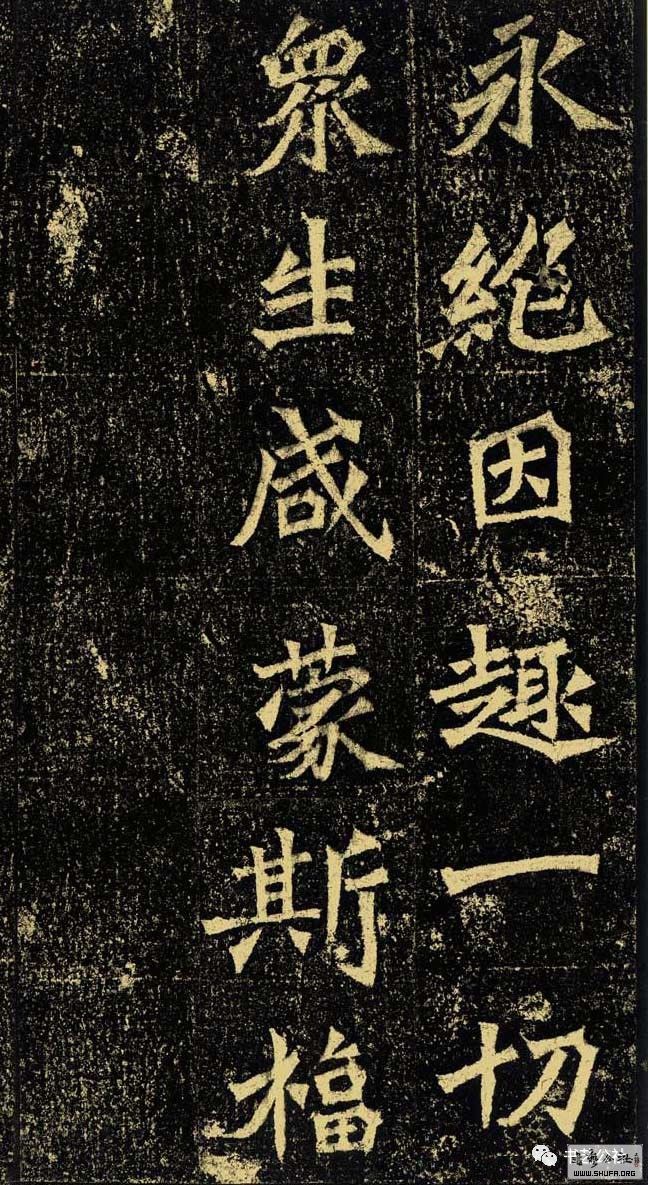 永絶因趣一切
衆生咸蒙斯福
WWW.SHUFA.ORG